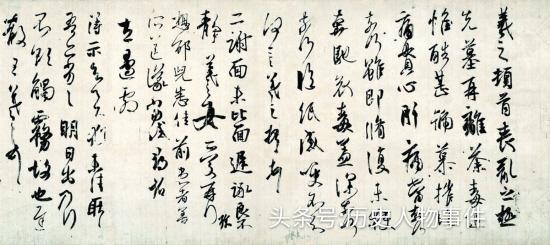 羲之頓首喪亂之極
先墓再離荼毒追
惟酷甚號慕摧絕
痛貫心肝痛當奈何
奈何雖即脩復未獲
奔馳哀毒益深奈何
奈何臨紙感哽不知
何言羲之頓首頓首
二謝面未比面遲詠良不
靜羲之女愛再拜
想邵兒悉佳前患者善
左邊劇
得示知足下猶未佳耿耿
吾亦劣劣明日出乃
不欲觸霧故也遲
散王羲之頓首
头条号/历史人物事件